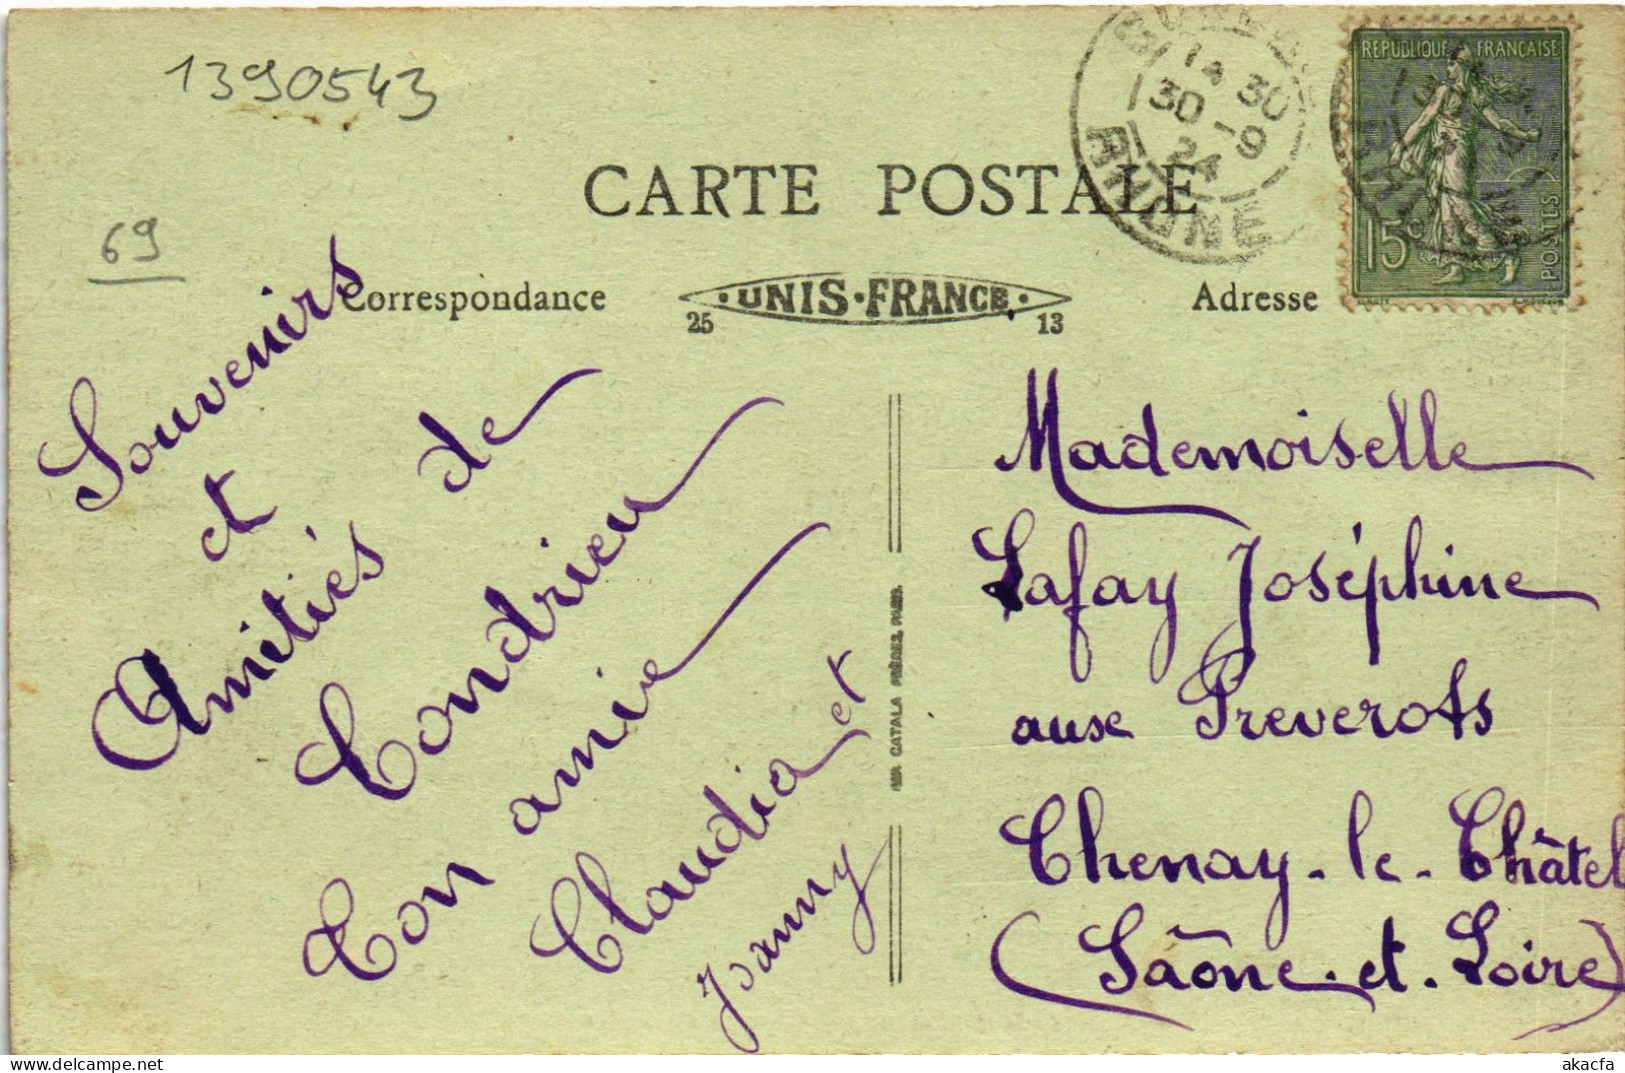 1390543
14 30
30 - 9
24
RHONE
REPUBLIQUE FRANÇAISE
15c
POSTES
CARTE POSTALE
69
Correspondance
UNIS-FRANCE
25 13
Adresse
Souvenirs
et
Amitiés de
Condrieu
Ton amie
Claudia et
Jeanny
IMP. CATALA FRÈRES, PARIS.
Mademoiselle
Lafay Joséphine
aux Preverots
Chenay-le-Châtel
(Saône-et-Loire)
akacfa